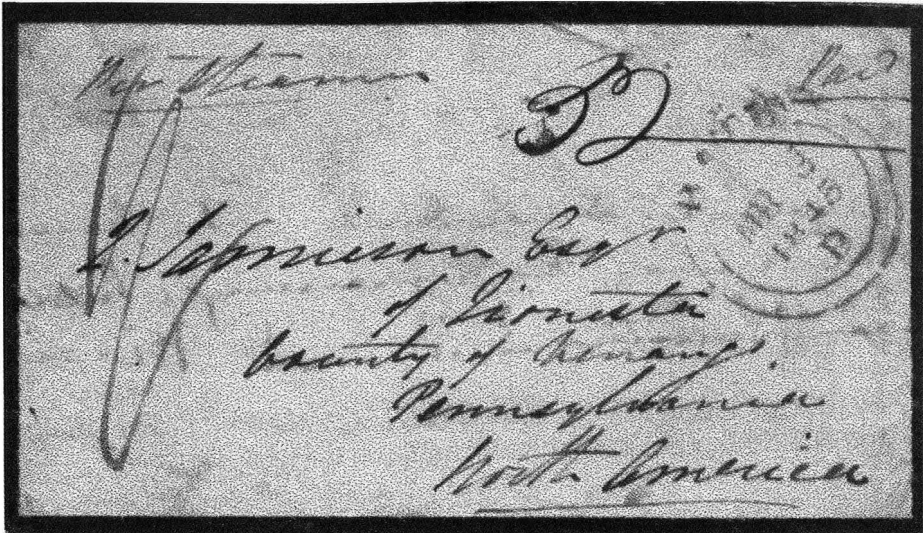 Steamer
Paid
Jamieson Esqr
of Tionesta
County of Venango
Pennsylvania
North America